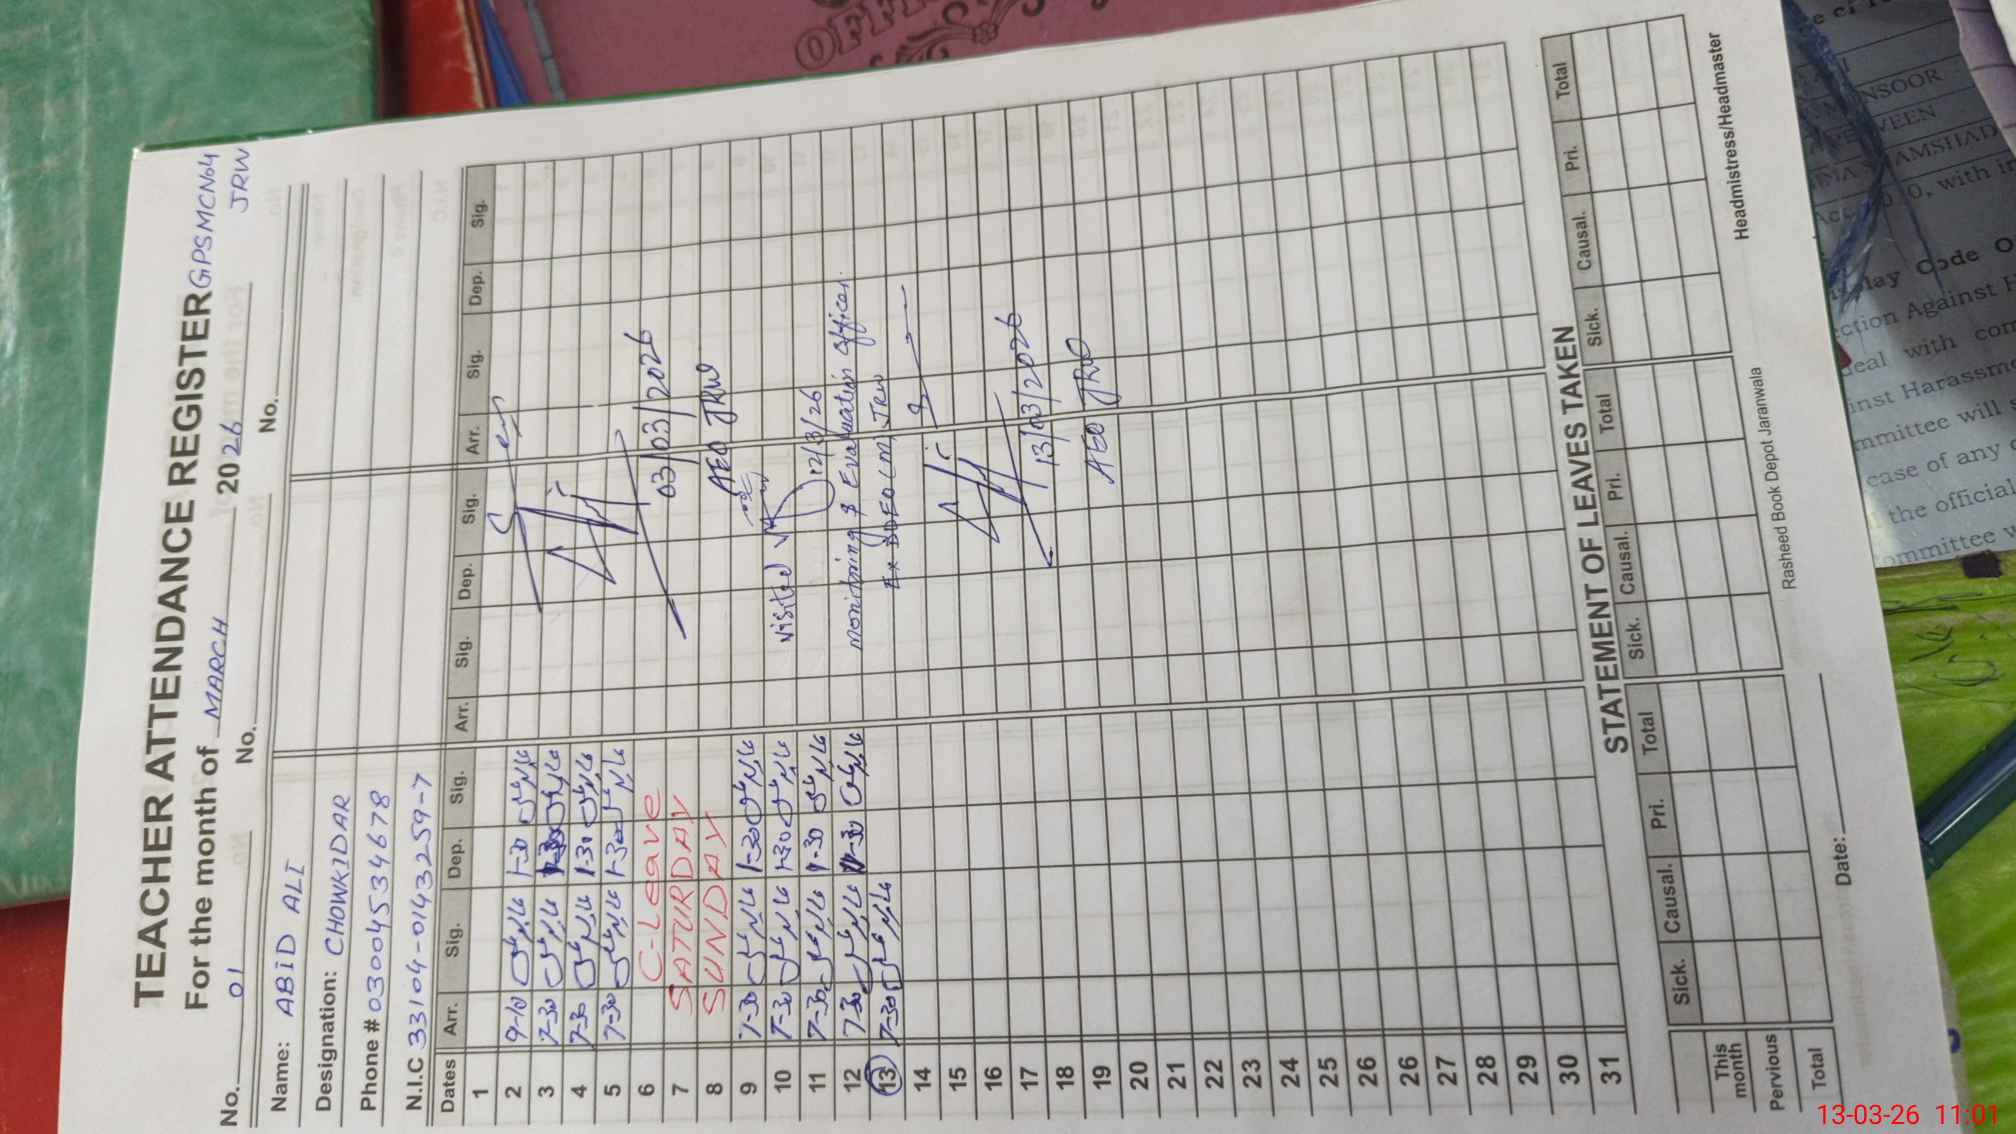 TEACHER ATTENDANCE REGISTER GPSMCNo4
For the month of MARCH 2026 JRW
No. 01 No. No.
Name: ABID ALI
Designation: CHOWKIDAR
Phone # 03004534678
N.I.C 33104-0143259-7
Dates Arr. Sig. Dep. Sig. Arr. Sig. Dep. Sig. Arr. Sig. Dep. Sig.
1
2 9-10 1-30
3 7-30 1-30
4 7-30 1-30
5 7-30 1-30
6 C-Leave
7 SATURDAY
8 SUNDAY
9 7-30 1-30
10 7-30 1-30
11 7-30 1-30
12 7-30 1-30
13 7-30
14
15
16
17
18
19
20
21
22
23
24
25
26
26
27
28
29
30
31
03/03/2026
AEO JRW
visited
12/3/26
Monitoring & Evaluation officer.
Ex DDEO (M) JRW
13/03/2026
AEO JRW
STATEMENT OF LEAVES TAKEN
Sick. Causal. Pri. Total Sick. Causal. Pri. Total Sick. Causal. Pri. Total
This month
Pervious
Total
Date:
Rasheed Book Depot Jaranwala
Headmistress/Headmaster
NSOOR
VEEN
AMSHAD
0, with
lay Code
ction Against
deal with
inst
mmittee will
case of any
the official
ommittee
13-03-26 11:01